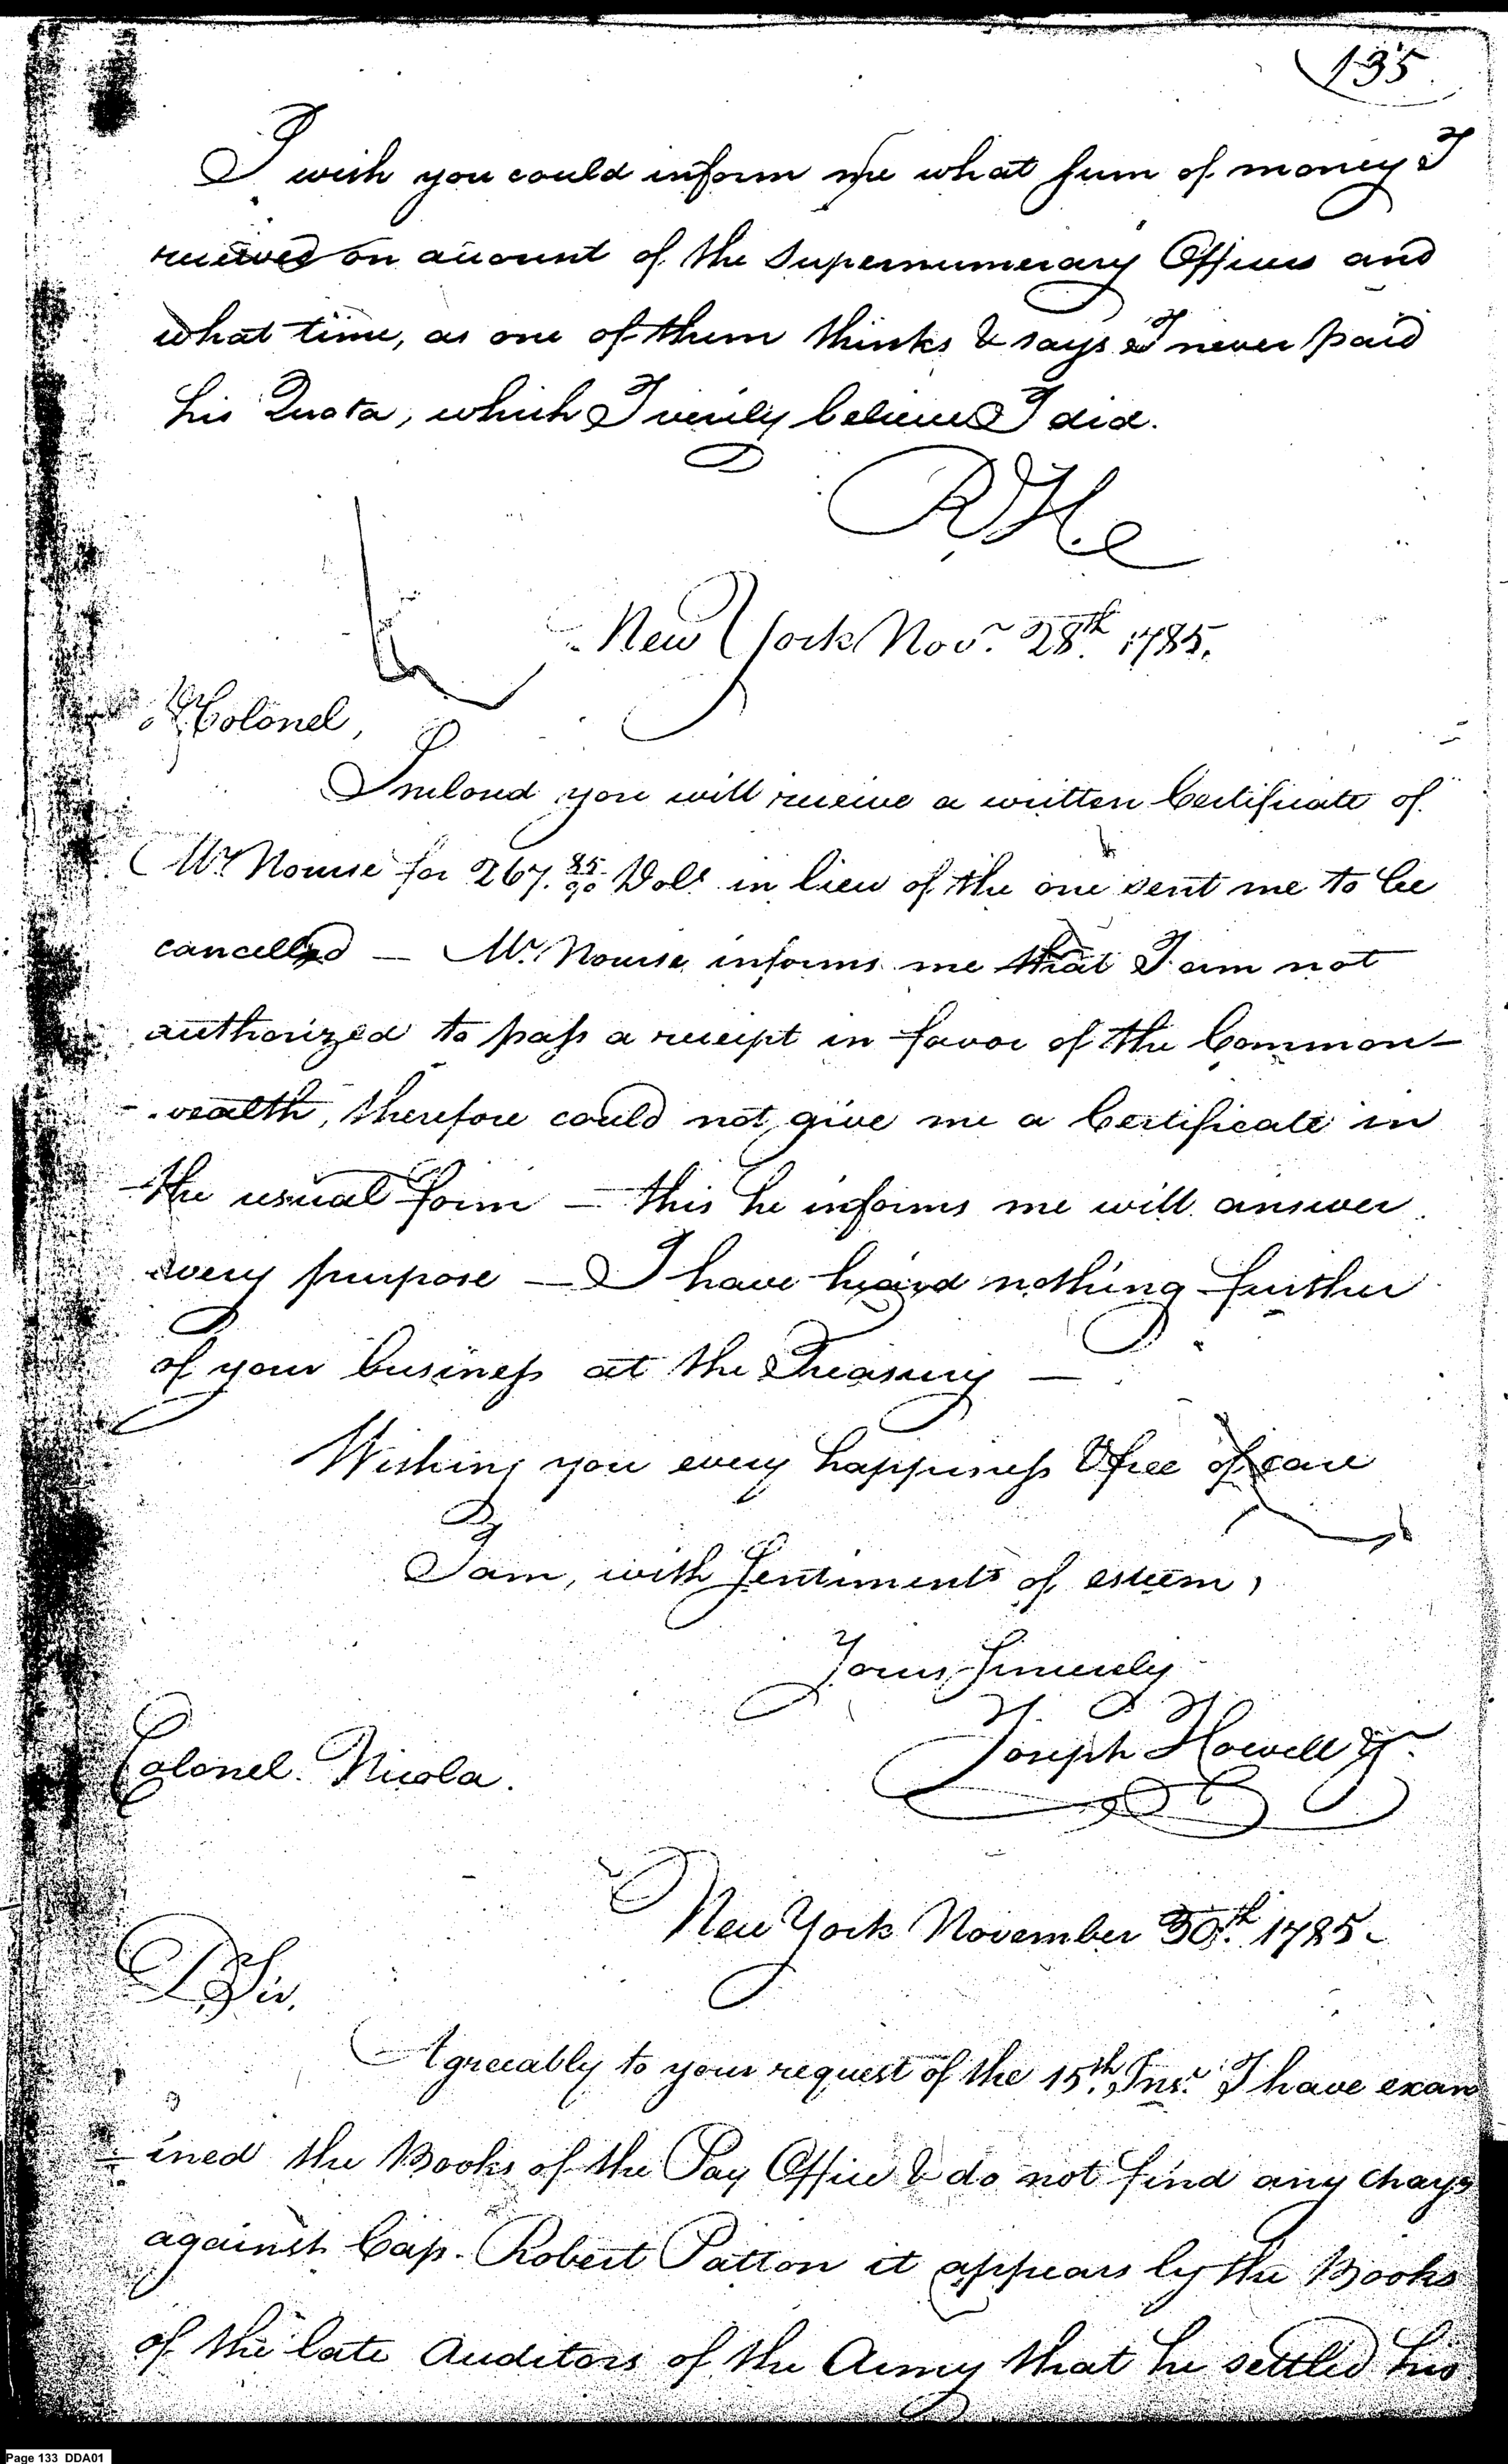 135
I wish you could inform me what sum of money I
received on account of the Supernumerary Officers and
what time, as one of them thinks & says I never paid
his Quota, which I verily believe I did.
RH
New York Nov.r 28th 1785.
Colonel,
Inclosed you will receive a written Certificate of
Mr Nourse for 267. 85/90 Dol.s in lieu of the one sent me to be
cancelled — Mr. Nourse informs me that I am not
authorized to pass a receipt in favor of the Common-
-wealth, therefore could not give me a Certificate in
the usual form — this he informs me will answer
every purpose — I have heard nothing further
of your business at the Treasury —
Wishing you every happiness & free of care
I am, with Sentiments of esteem,
Yours Sincerely
Joseph Howell Jr.
Colonel Nicola.
New York November 30th. 1785.
D Sir,
Agreeably to your request of the 15th. Inst. I have exam
-ined the Books of the Pay Office & do not find any charge
against Cap. Robert Patton it appears by the Books
of the late Auditors of the Army that he settled his
Page 133 DDA01